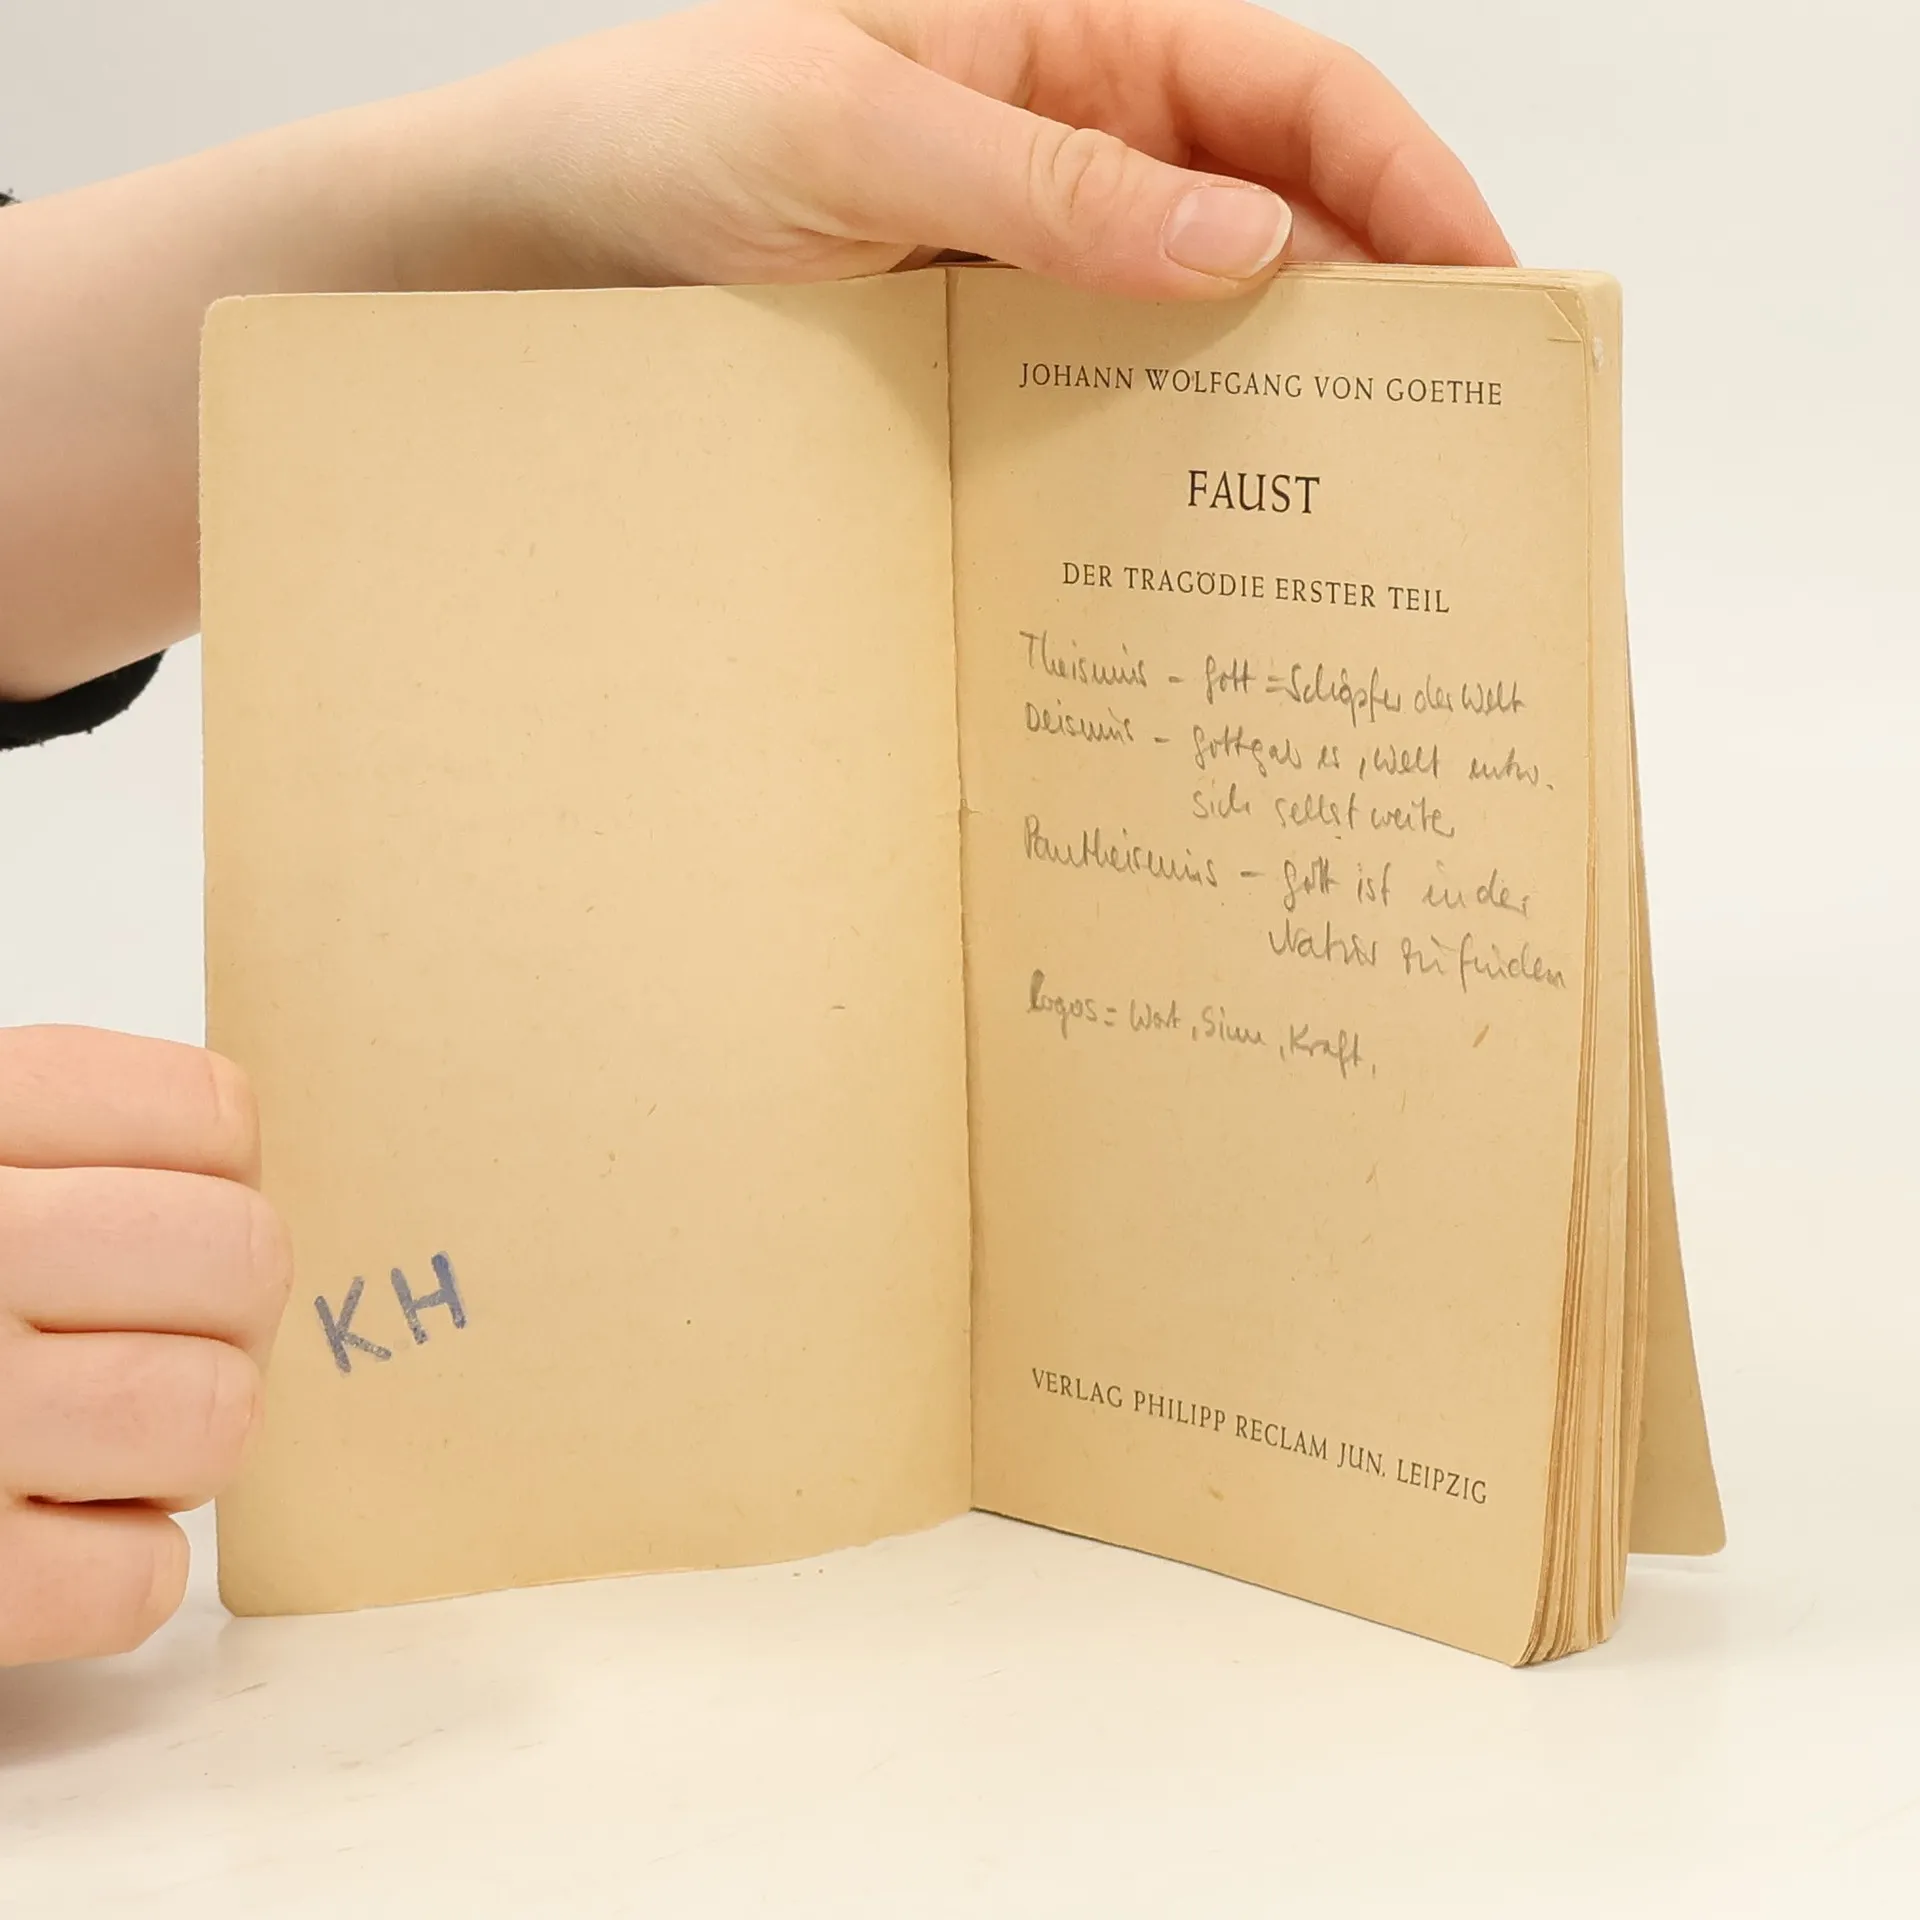 KH
JOHANN WOLFGANG VON GOETHE
FAUST
DER TRAGÖDIE ERSTER TEIL
Theismus - Gott = Schöpfer der Welt
Deismus - Gott gab es, Welt entw.
sich selbst weiter
Pantheismus - Gott ist in der
Natur zu finden
Logos = Wort, Sinn, Kraft,
VERLAG PHILIPP RECLAM JUN. LEIPZIG